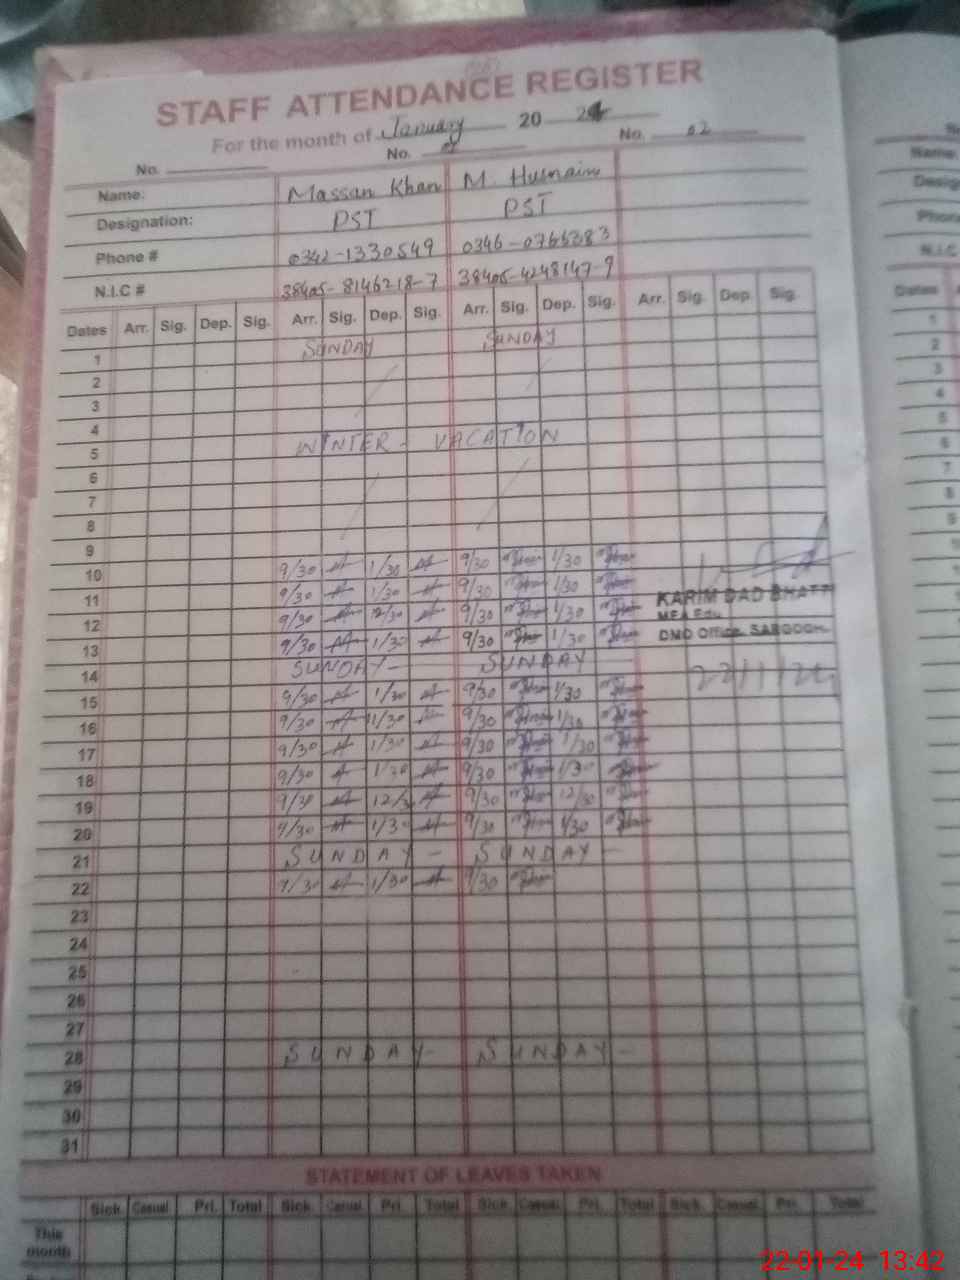 STAFF ATTENDANCE REGISTER
For the month of January 20 24
No. No. 01 No. 02
Name: Massan Khan M. Husnain
Designation: PST PST
Phone # 0342-1330549
N.I.C # 38405-8146218-7 38405-4248147-9
Dates Arr. Sig. Dep. Sig. Arr. Sig. Dep. Sig. Arr. Sig. Dep. Sig. Arr. Sig. Dep. Sig.
1 SUNDAY SUNDAY
2
3
4
5 WINTER - VACATION
6
7
8
9
10 9/30 1/30 9/30 1/30
11 9/30 1/30 9/30 1/30
12 9/30 12/30 9/30 1/30
13 9/30 1/30 9/30 1/30
14 SUNDAY - SUNDAY -
15 9/30 1/30 9/30 1/30
16 9/30 11/30 9/30 1/30
17 9/30 1/30 9/30 1/30
18 9/30 1/30 9/30 1/30
19 9/30 12/30 9/30 12/30
20 9/30 1/30 9/30 1/30
21 SUNDAY - SUNDAY -
22 9/30 1/30 9/30
23
24
25
26
27
28 SUNDAY - SUNDAY -
29
30
31
KARIM DAD BHATTI
MEA Edu
DMO Office, SARGODHA
22/1/24
STATEMENT OF LEAVES TAKEN
Sick Casual Pri. Total Sick Casual Pri. Total Sick Casual Pri. Total Sick Casual Pri. Total
This
month
No.
Name
Phone
N.I.C
Dates
1
2
3
4
5
6
7
8
9
22-01-24 13:42